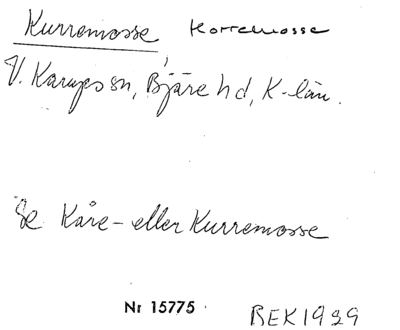 Kurremosse Korremosse
V. Karups sn, Bjäre hd, K-län.
Se Kåre- eller Kurremosse
Nr 15775
BEK 1929